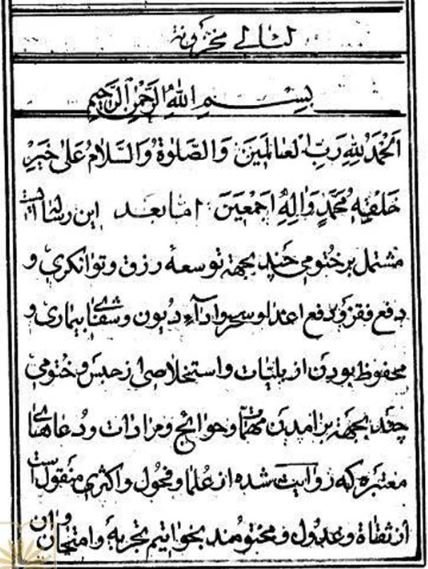 لئالی مخزونه
بِسْمِ اللهِ الرَّحْمٰنِ الرَّحِیمِ
اَلحَمْدُ لِلّٰهِ رَبِّ العالَمِینَ وَالصَّلوٰةُ وَالسَّلامُ عَلیٰ خَیْرِ
خَلقِهِ مُحَمَّدٍ وَالِهِ اَجمَعینَ امابعد این رساله ایست
مشتمل بر ختومی چند بجهة توسعهٔ رزق و توانکری و
دفع فقر و دفع اعدا و سحر و اداء دیون و شفای بیماری و
محفوظ بودن از بلیات و استخلاصی از حبس و ختومی
چند بجهة بر امدن مهمات و حوائج و مرادات و دعاهای
معتبره که روایت شده از علما و فحول و اکثری منقول است
از ثقاة و عدول و مختومند بخواتیم تجربه و امتحان و ان